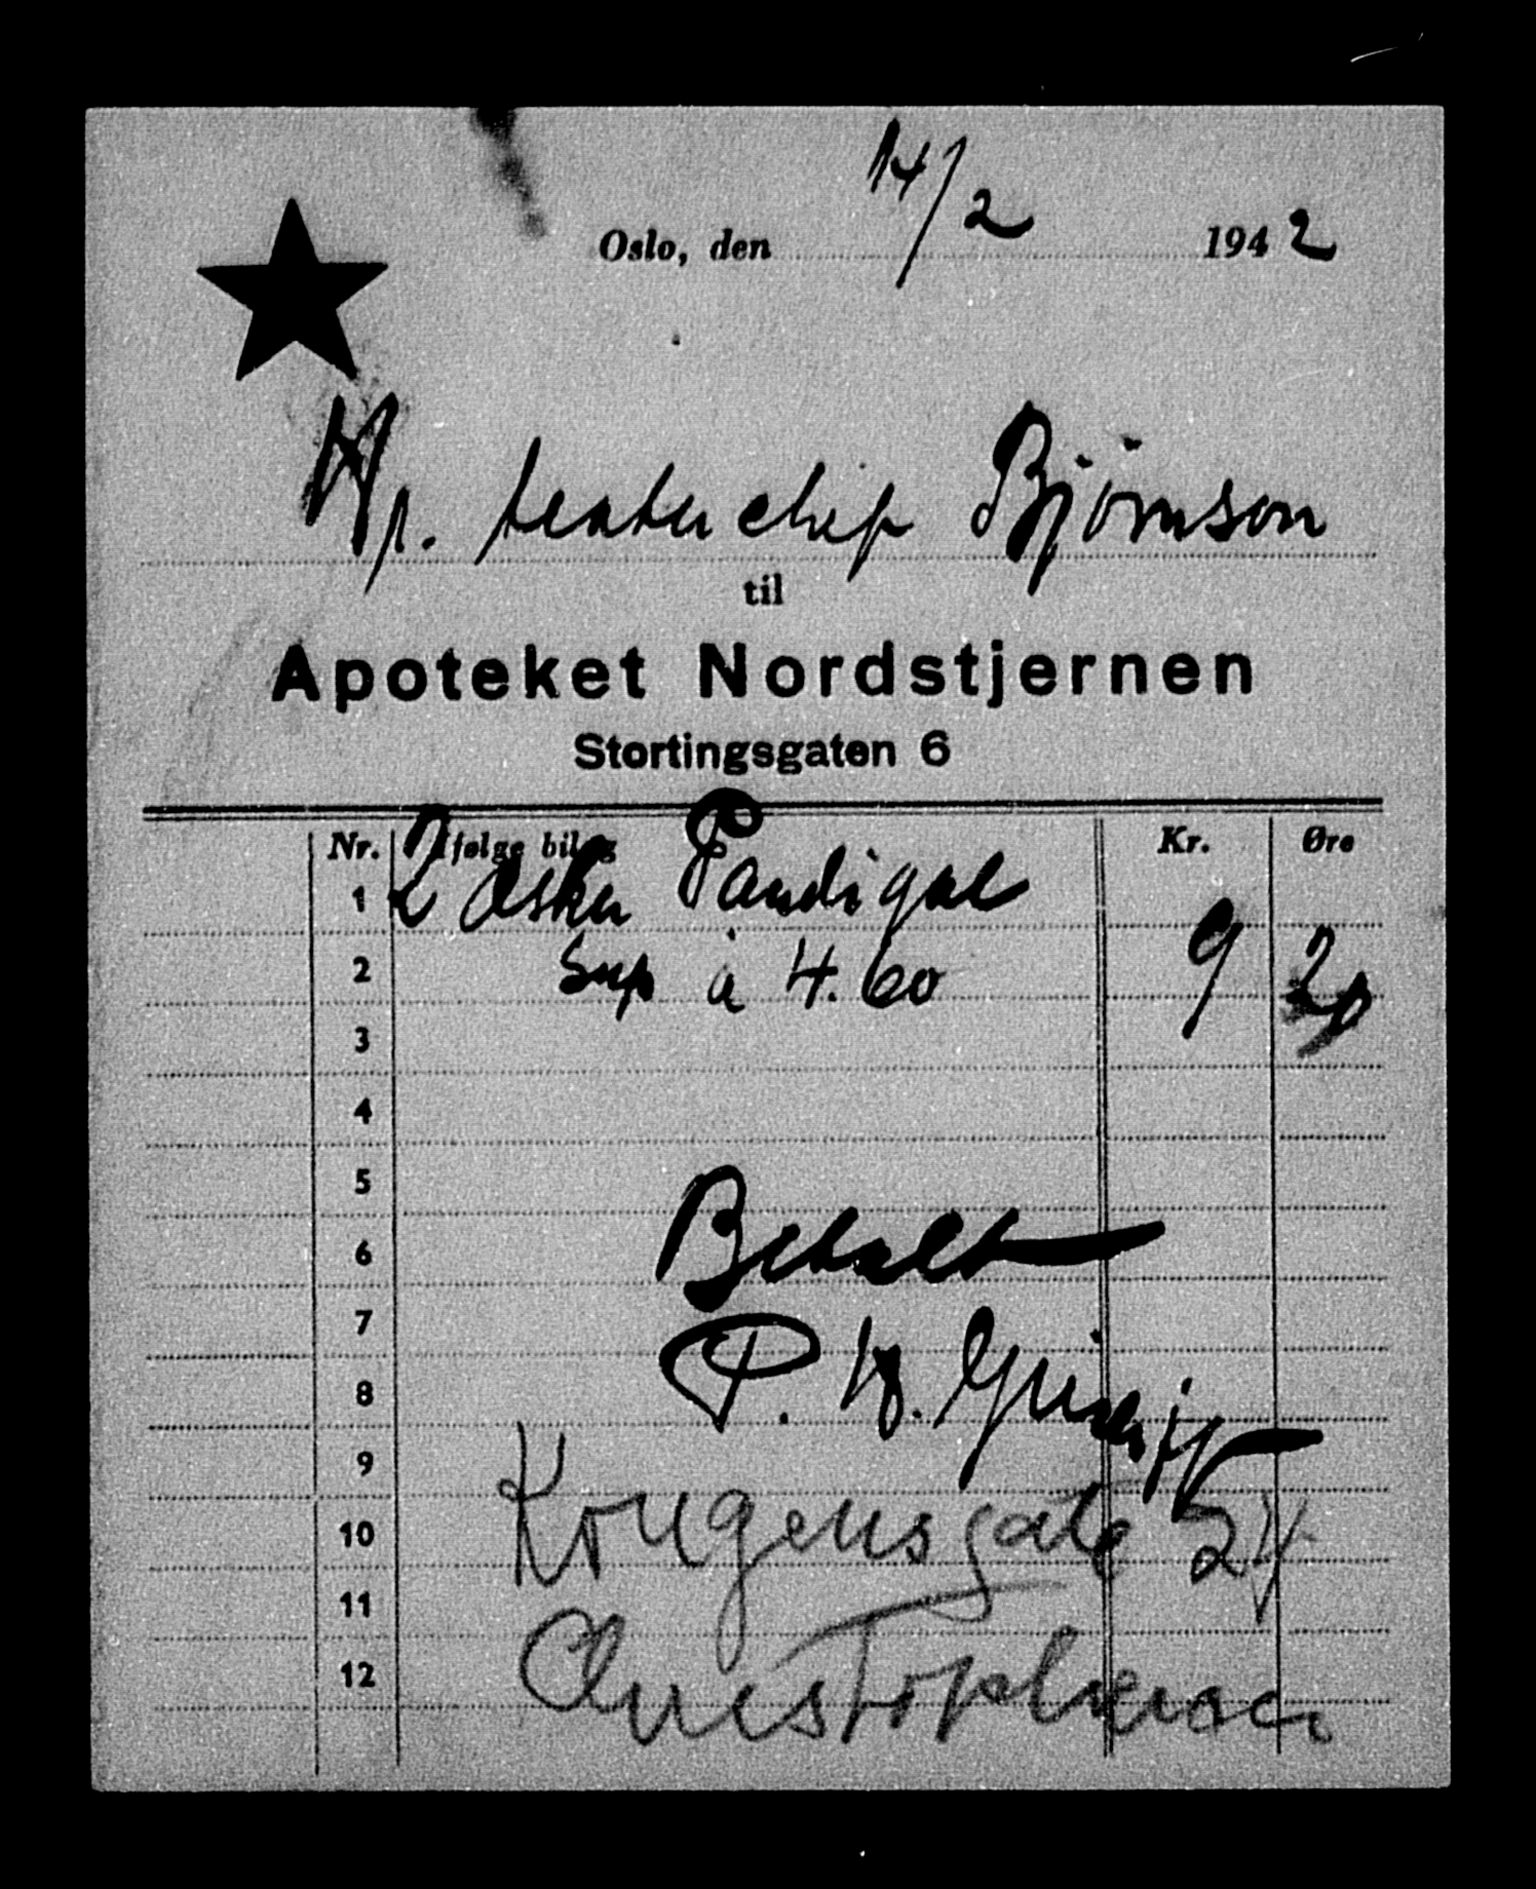 Oslo, den 14/2 1942
Hr. teaterchef Björnson
til
Apoteket Nordstjernen
Stortingsgaten 6
Nr. Ifølge bilag Kr. Øre
1 2 Æsker Pandigal
2 Sup à 4.60 9 20
3
4
5
6 Betalt
7
8 P. H.
9
10 Kongensgate 24
11
12 Christophersen